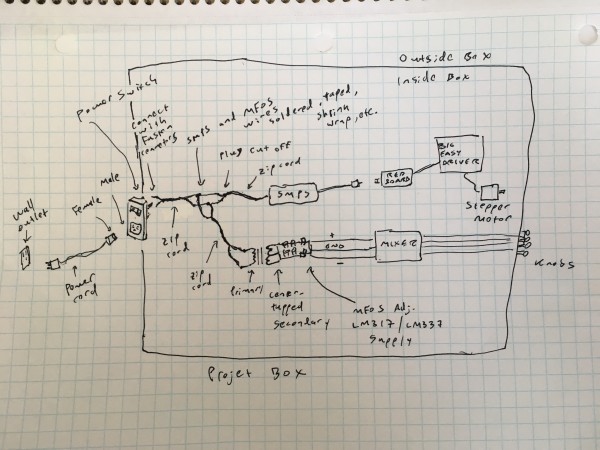 Outside Box
Inside Box
Power Switch
connect
with
Faston
connectors
SMPS and MFOS
wires
soldered, taped,
shrink
wrap, etc.
Plug cut off
zip cord
SMPS
RED
BOARD
BIG
EASY
DRIVER
Stepper
Motor
Male
Female
Wall
outlet
Power
cord
zip
cord
zip
cord
Primary
center
tapped
Secondary
+
GND
-
MIXER
Knobs
MFOS Adj.
LM317/LM337
Supply
Projet Box